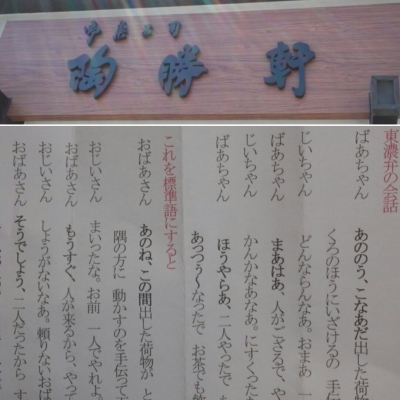 陶勝軒
東濃弁の会話
ばあちゃん　あののう、こなあだ出した荷物
くろのほうにいざけるの　手伝
じいちゃん　どんならんなあ。おまあ　一
ばあちゃん　まあはあ、人がござるで、や
じいちゃん　かんかなあなあ。にすくった
ばあちゃん　ほうやらあ、二人やったで
あっつぅ〜なったで　お茶でも飲
これを標準語にすると
おばあさん　あのね、この間出した荷物が　と
隅の方に　動かすのを手伝って
おじいさん　まいったな。お前　一人でやれよ。
おばあさん　もうすぐ、人が来るから、やって
おじいさん　しょうがないなあ。頼りないおば
おばあさん　そうでしょう、二人だったから　す